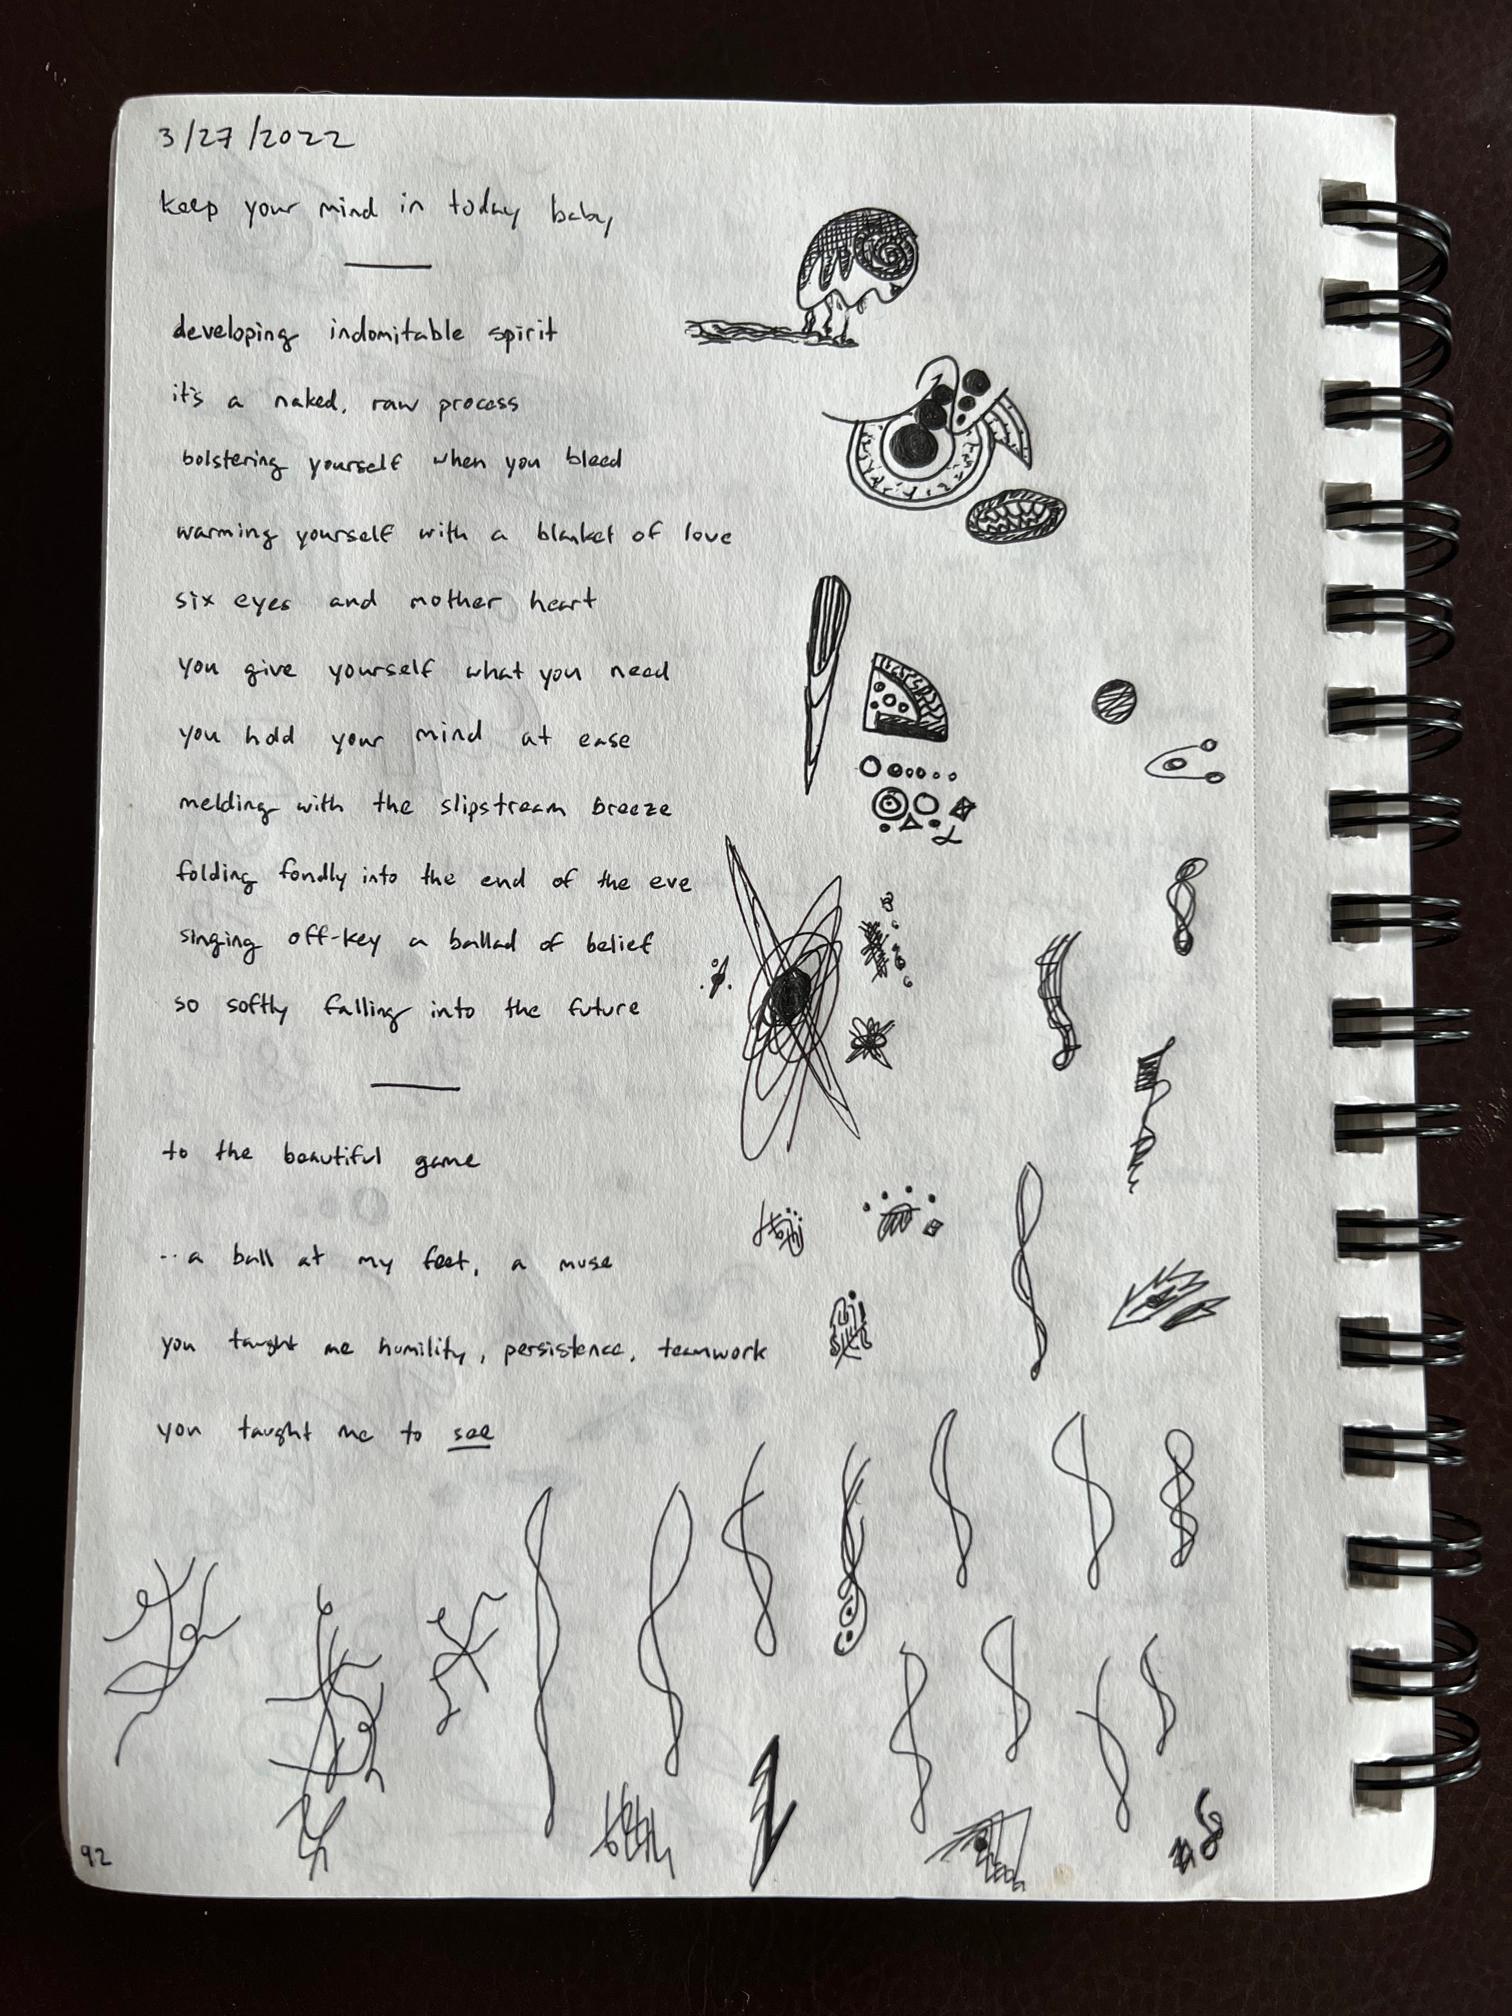 3/27/2022
keep your mind in today baby
developing indomitable spirit
it's a naked, raw process
bolstering yourself when you bleed
warming yourself with a blanket of love
six eyes and mother heart
you give yourself what you need
you hold your mind at ease
melding with the slipstream breeze
folding fondly into the end of the eve
singing off-key a ballad of belief
so softly falling into the future
to the beautiful game
..a ball at my feet, a muse
you taught me humility, persistence, teamwork
you taught me to see
92